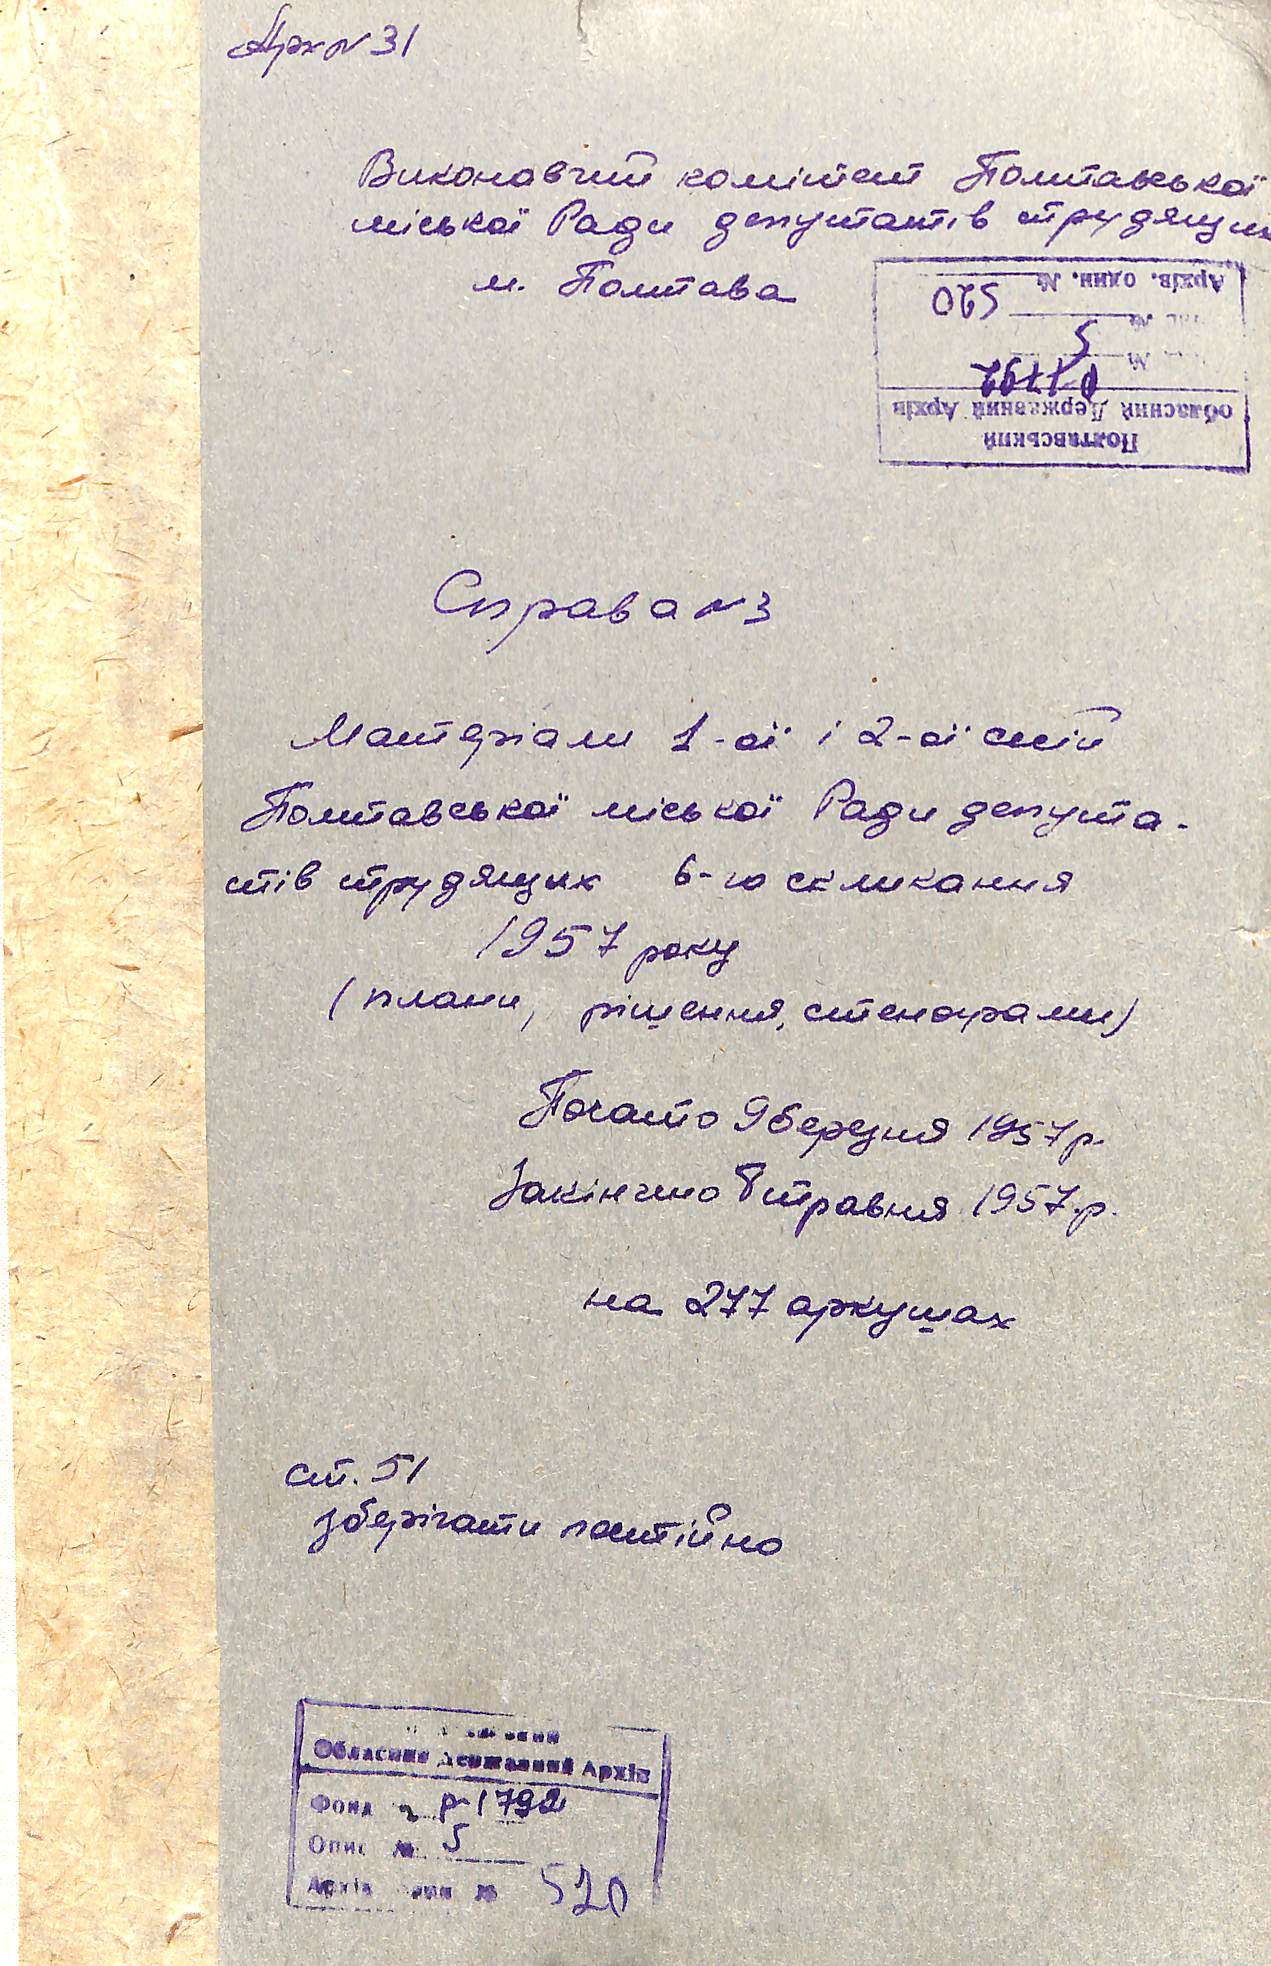 Арх № 31
Виконавчий комітет Полтавської
міської Ради депутатів трудящих
м. Полтава
Полтавський
обласний Державний Архів
Р-1792
№ 5
Архів. один. № 520
Справа № 3
Матеріали 1-ої і 2-ої сесій
Полтавської міської Ради депута-
тів трудящих 6-го скликання
1957 року
(плани, рішення, стенограми)
Почато 9 березня 1957 р.
Закінчено 8 травня 1957 р.
на 277 аркушах
ст. 51
зберігати постійно
Обласний Державний Архів
Фонд № Р-1792
Опис № 5
Архів один № 520